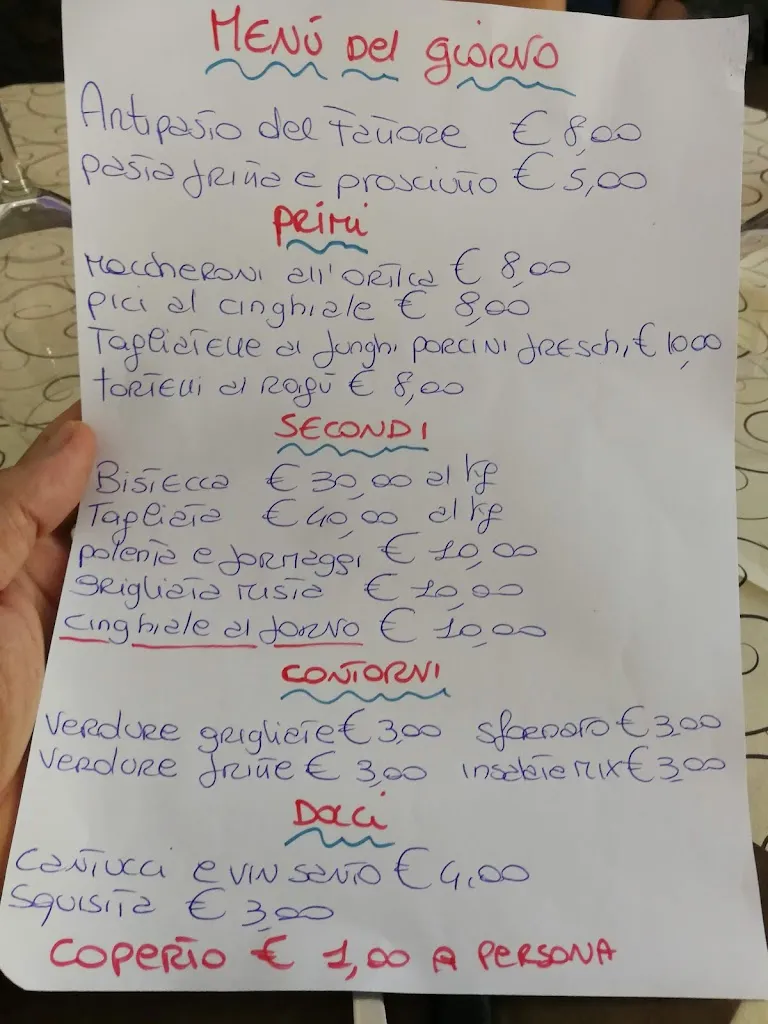 MENÚ Del giORNO
Antipasto del Tattore € 8,00
pasta fritta e prosciutto € 5,00
PRIMI
Maccheroni all'ORTica € 8,00
pici al cinghiale € 8,00
TagliaTelle ai funghi PORCINI freschi € 10,00
TORTelli al Ragù € 8,00
SECONDI
BisTecca € 30,00 al kg
TagliaTa € 40,00 al kg
polenta e formaggi € 10,00
grigliata mista € 10,00
cinghiale al forno € 10,00
CONTORNI
Verdure grigliate € 3,00 sformato € 3,00
Verdure fritte € 3,00 insalate mix € 3,00
Dolci
Cantucci e vin santo € 4,00
Squisita € 3,00
COPERTO € 1,00 A PERSONA